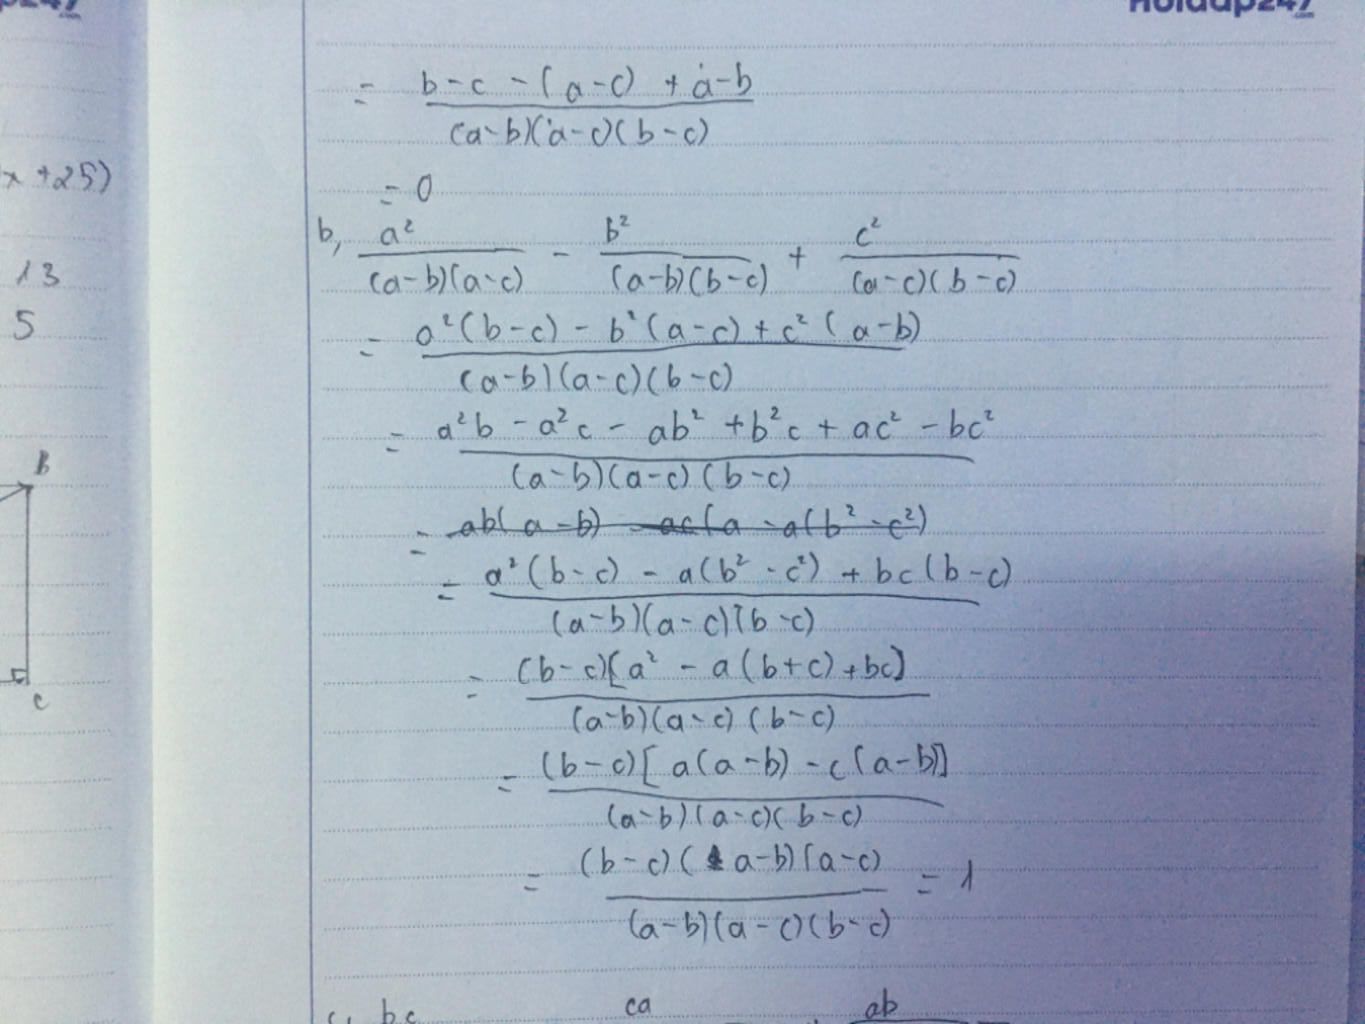 Hoidap247
.com
= b-c-(a-c)+a-b / (a-b)(a-c)(b-c)
x+25)
= 0
b, a² / (a-b)(a-c) - b² / (a-b)(b-c) + c² / (a-c)(b-c)
13
5
= a²(b-c) - b²(a-c) + c²(a-b) / (a-b)(a-c)(b-c)
= a²b - a²c - ab² + b²c + ac² - bc² / (a-b)(a-c)(b-c)
B
= ab(a-b) - ac(a - a(b²-c²)
= a²(b-c) - a(b²-c²) + bc(b-c) / (a-b)(a-c)(b-c)
= (b-c)[a² - a(b+c) + bc] / (a-b)(a-c)(b-c)
C
= (b-c)[a(a-b) - c(a-b)] / (a-b)(a-c)(b-c)
= (b-c)(a-b)(a-c) / (a-b)(a-c)(b-c) = 1
c, bc ca ab